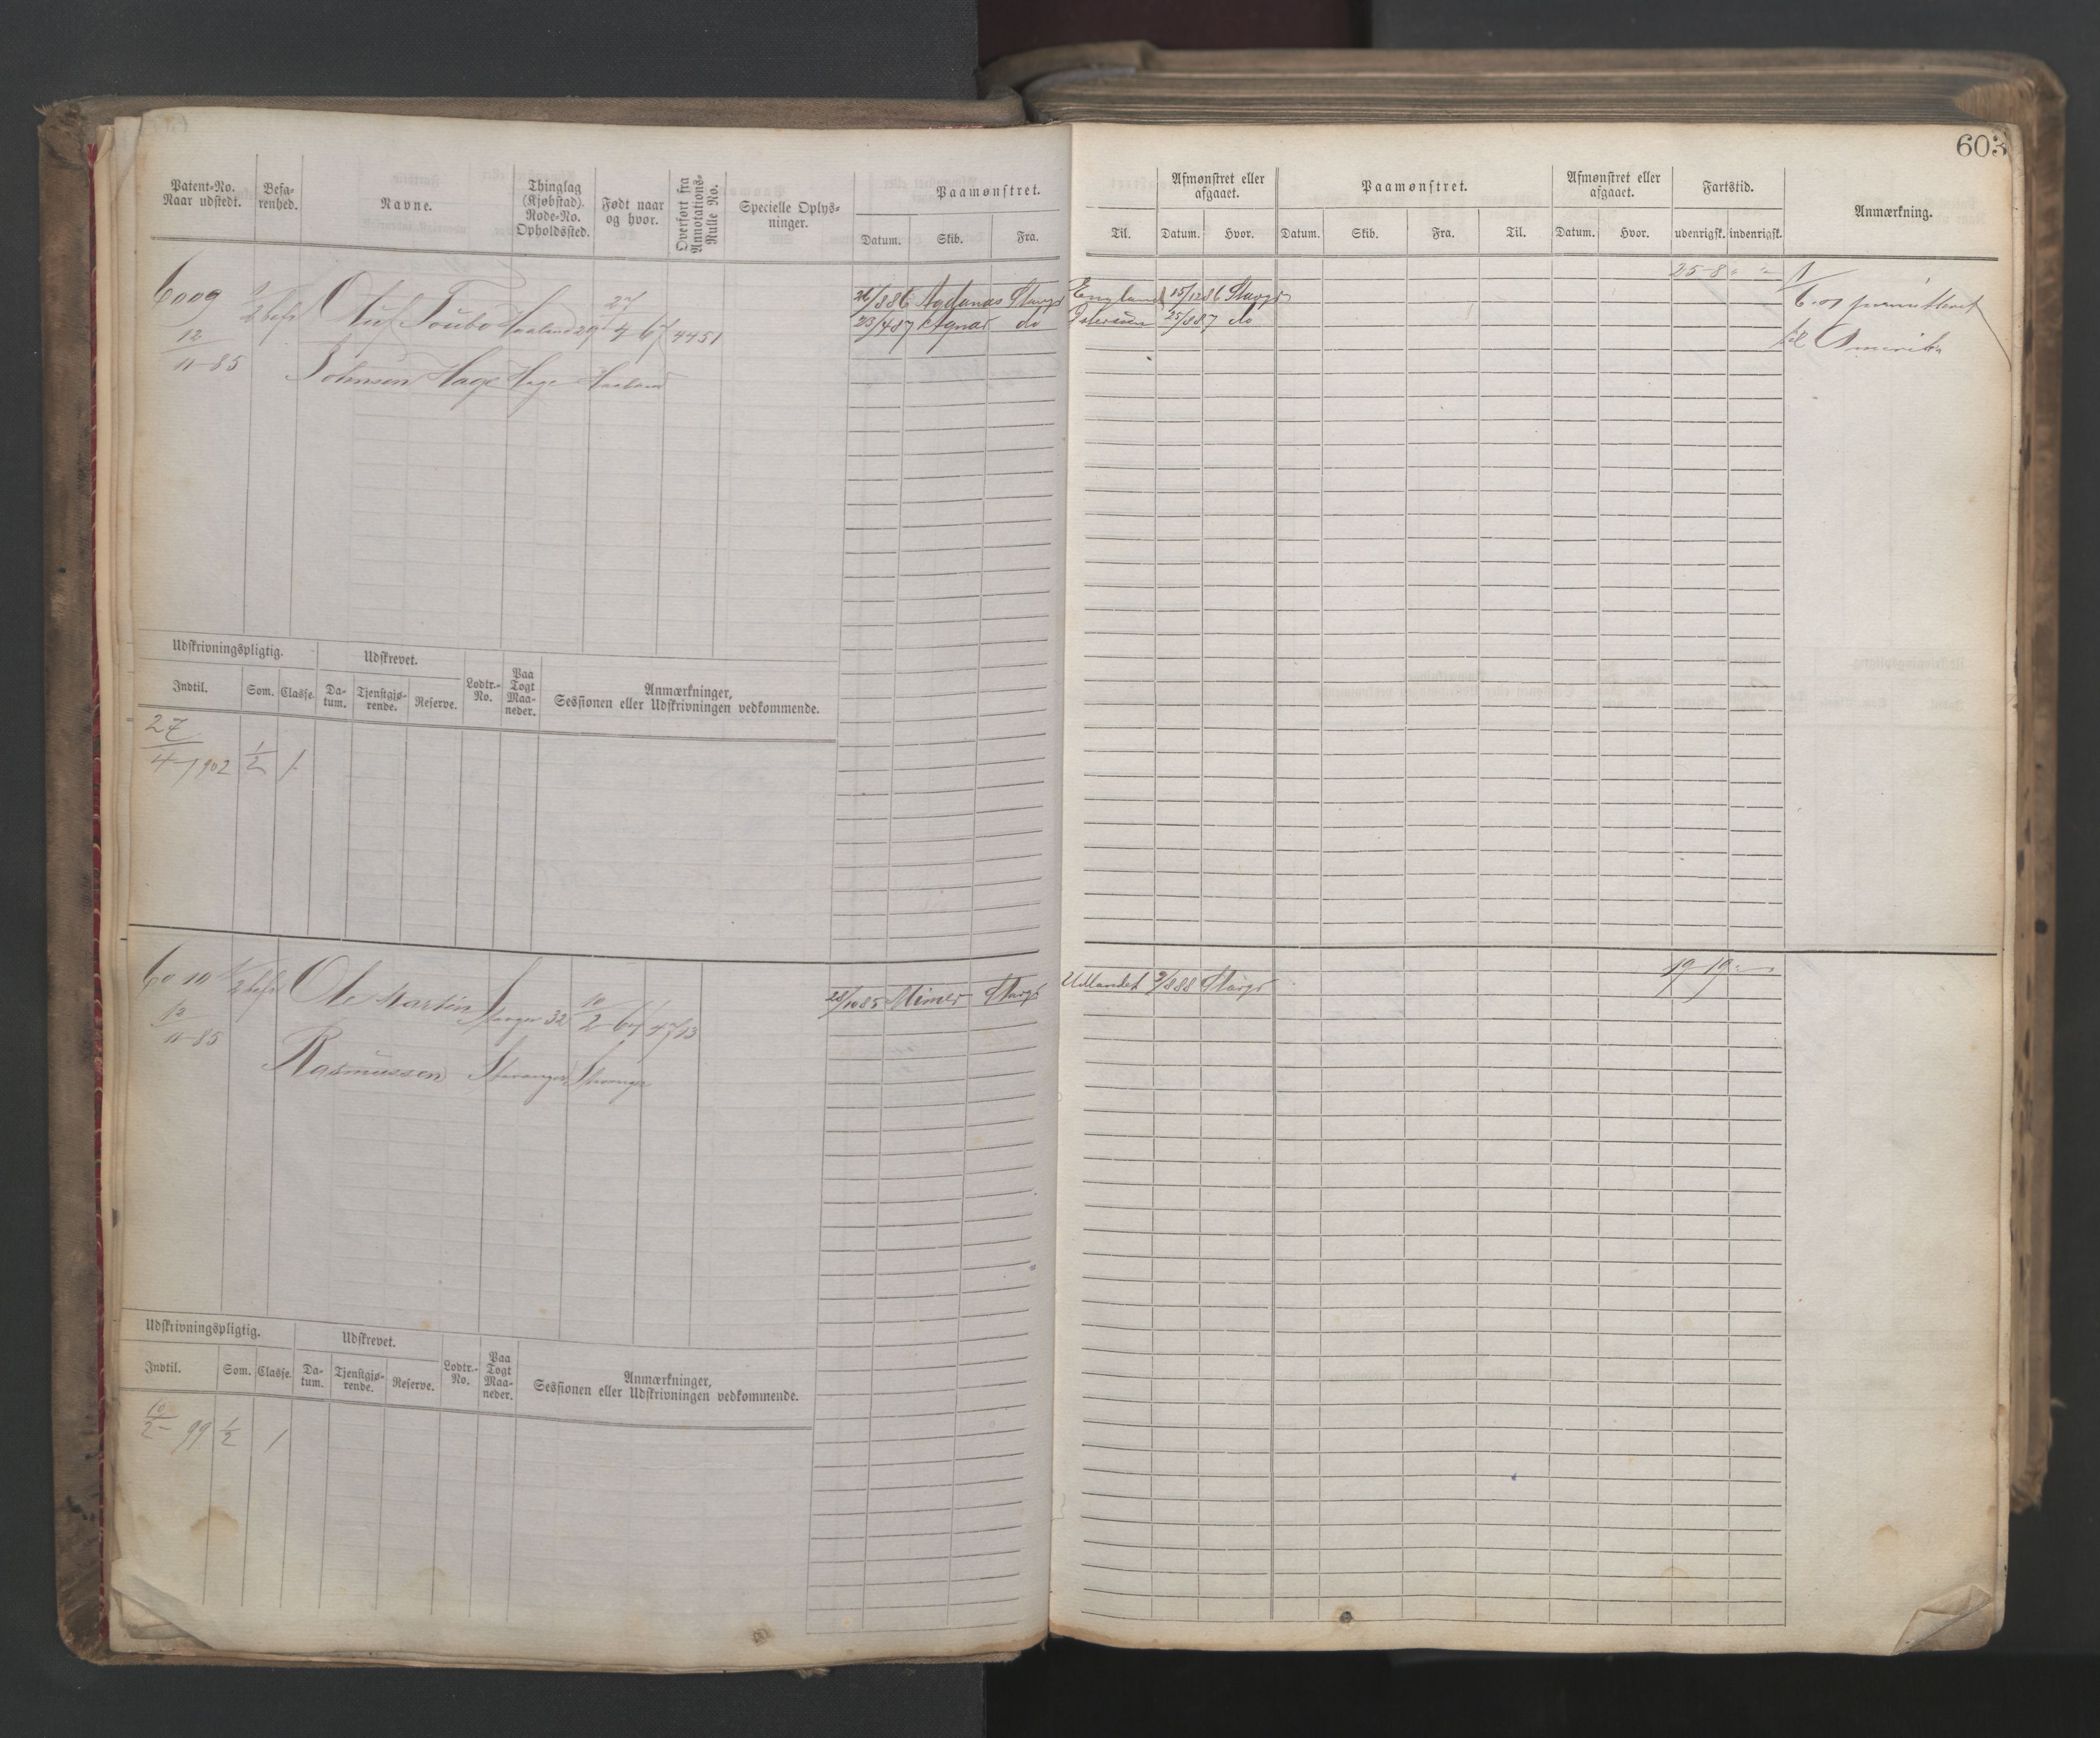 603
Patent-No. Naar udstedt. Befa-renhed. Navne. Thinglag (Kjøbstad). Rode-No. Opholdssted. Født naar og hvor. Overført fra Annotations-Rulle No. Specielle Oplys-ninger. Paamønstret. Datum. Skib. Fra.
Til. Afmønstret eller afgaaet. Datum. Hvor. Paamønstret. Datum. Skib. Fra. Til. Afmønstret eller afgaaet. Datum. Hvor. Fartstid. udenrigsk. indenrigsk. Anmærkning.
25-8
6009 1/2 bef Oluf Toubo Haaland 29 27/4 67 4451 26/8 86 Agdanas Stavgr England 15/12 86 Stavgr
12/11-85 23/4 87 Agnar do 25/8 87 do
Johnsen Hage Hage Haaland
til Amerika
Udskrivningspligtig. Udskrevet. Lodtr.-No. Paa Togt Maa-neder. Anmærkninger, Sessionen eller Udskrivningen vedkommende.
Indtil. Som. Classe. Da-tum. Tjenstgjø-rende. Reserve.
27/4 1902 1/2 1
19-19
6010 1/2 bef Ole Martin Stavger 32 10/2 64 4713 28/10 85 Mimer Stavgr Udlandet 9/8 88 Stavgr
12/11-85
Rasmussen Stavanger Stavanger
Udskrivningspligtig. Udskrevet. Lodtr.-No. Paa Togt Maa-neder. Anmærkninger, Sessionen eller Udskrivningen vedkommende.
Indtil. Som. Classe. Da-tum. Tjenstgjø-rende. Reserve.
10/2 99 1/2 1